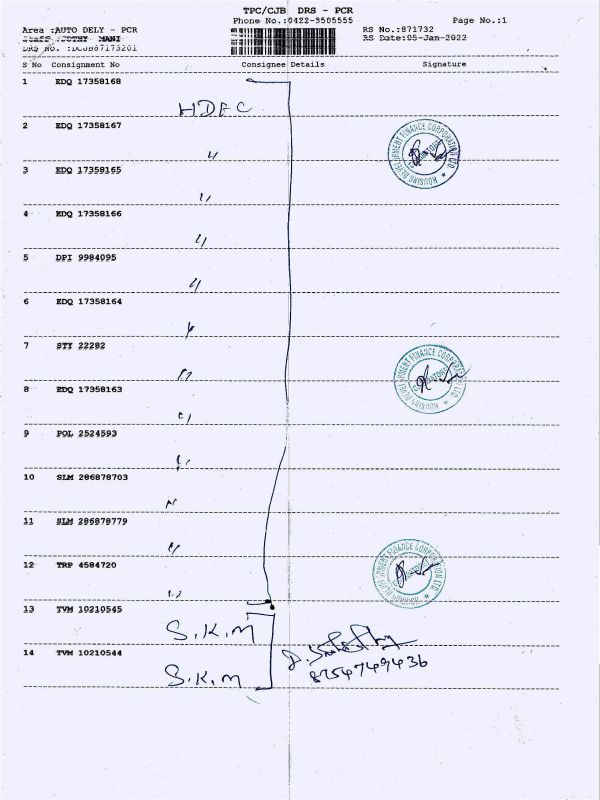 TPC/CJB DRS - PCR
Phone No.:0422-3505555 Page No.:1
Area :AUTO DELY - PCR RS No.:871732
Staff :JOTHY MANI RS Date:05-Jan-2022
DRS No. :DCJB87173201
S No Consignment No Consignee Details Signature
1 EDQ 17358168
HDFC
2 EDQ 17358167
"
3 EDQ 17358165
"
4 EDQ 17358166
"
5 DPI 9984095
"
6 EDQ 17358164
"
7 STY 22282
"
8 EDQ 17358163
"
9 POL 2524593
"
10 SLM 286878703
"
11 SLM 286878779
"
12 TRP 4584720
"
13 TVM 10210545
S.K.M
14 TVM 10210544
8754749436
S.K.M
HOUSING DEVELOPMENT FINANCE CORPORATION LTD
HOUSING DEVELOPMENT FINANCE CORPORATION LTD
HOUSING DEVELOPMENT FINANCE CORPORATION LTD